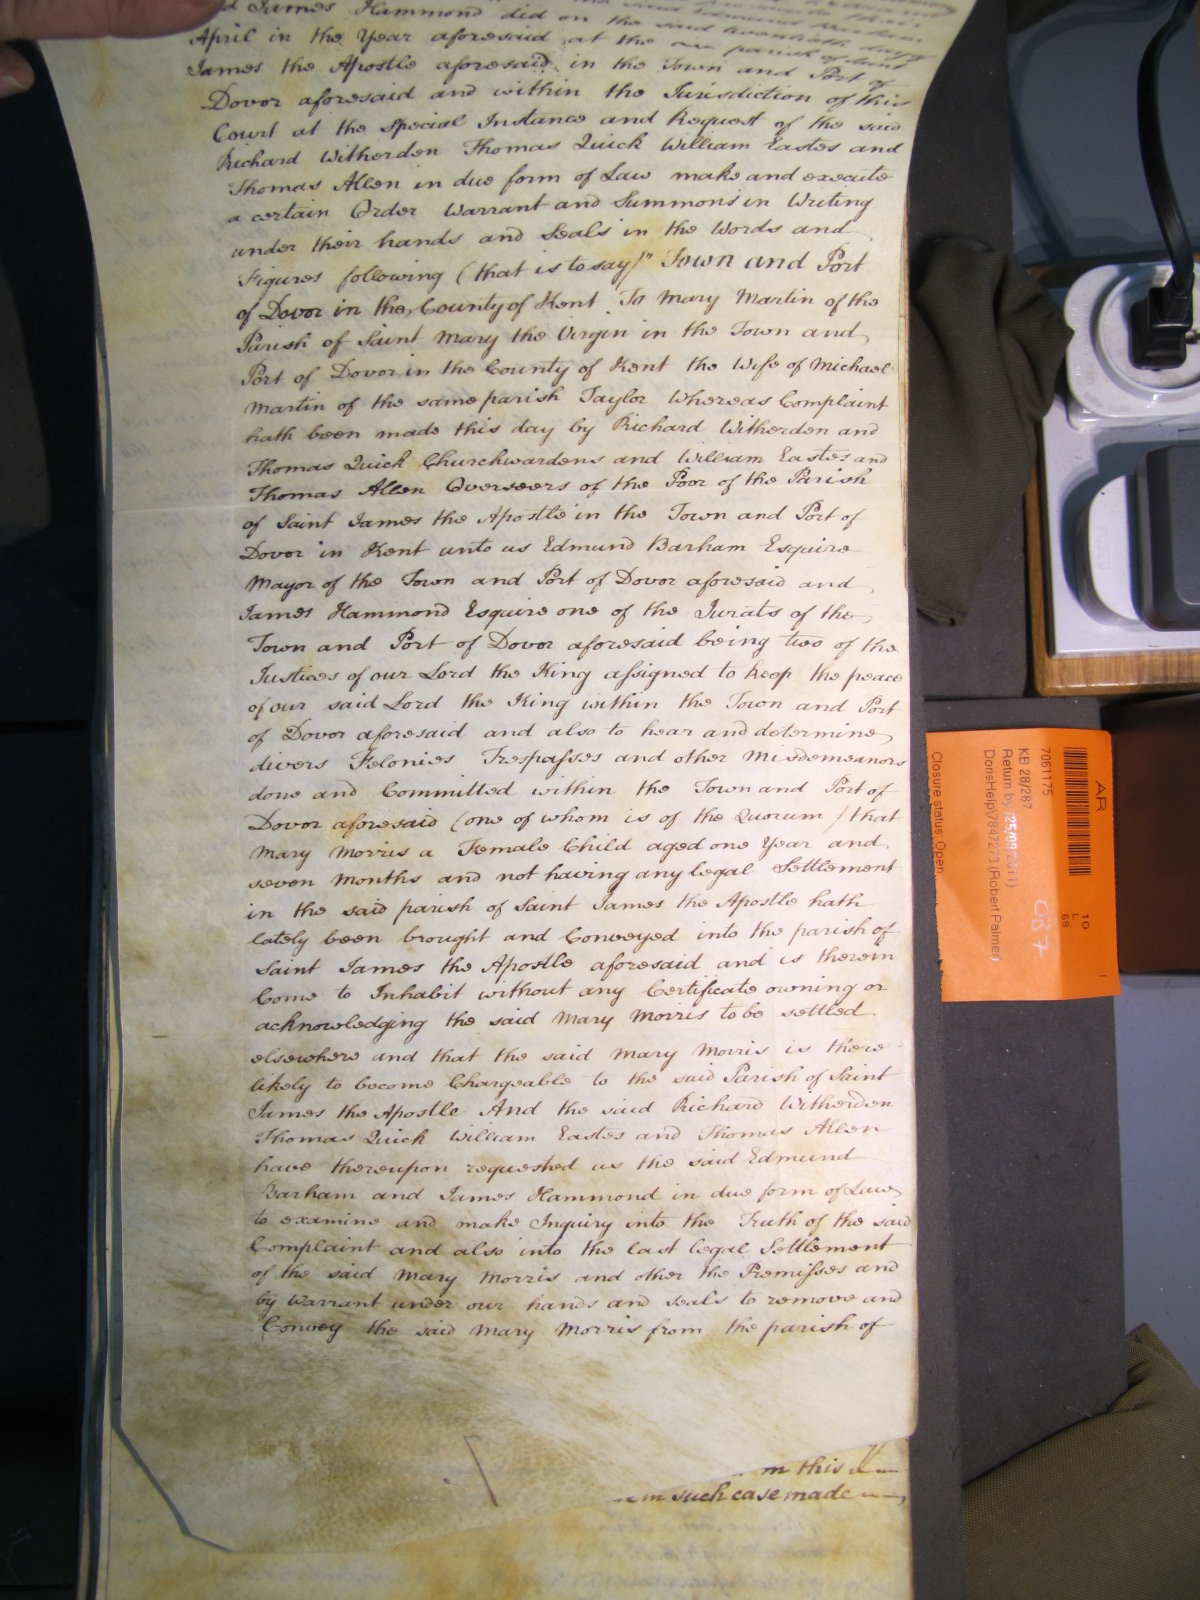 d James Hammond did on the said twentieth day of
April in the Year aforesaid at the parish of Saint
James the Apostle aforesaid in the Town and Port of
Dovor aforesaid and within the Jurisdiction of this
Court at the special Instance and Request of the said
Richard Witherden Thomas Quick William Eastes and
Thomas Allen in due form of Law make and execute
a certain Order Warrant and Summons in Writing
under their hands and Seals in the Words and
Figures following (that is to say)" Town and Port
of Dovor in the County of Kent. To Mary Martin of the
Parish of Saint Mary the Virgin in the Town and
Port of Dovor in the County of Kent the Wife of Michael
Martin of the same parish Taylor Whereas Complaint
hath been made this day by Richard Witherden and
Thomas Quick Churchwardens and William Eastes and
Thomas Allen Overseers of the Poor of the Parish
of Saint James the Apostle in the Town and Port of
Dovor in Kent unto us Edmund Barham Esquire
Mayor of the Town and Port of Dovor aforesaid and
James Hammond Esquire one of the Jurats of the
Town and Port of Dovor aforesaid being two of the
Justices of our Lord the King assigned to keep the peace
of our said Lord the King within the Town and Port
of Dovor aforesaid and also to hear and determine
divers Felonies Trespasses and other Misdemeanors
done and Committed within the Town and Port of
Dovor aforesaid (one of whom is of the Quorum) that
Mary Morris a Female Child aged one Year and
seven Months and not having any legal Settlement
in the said parish of Saint James the Apostle hath
lately been brought and Conveyed into the parish of
Saint James the Apostle aforesaid and is therein
Come to Inhabit without any Certificate owning or
acknowledging the said Mary Morris to be settled
elsewhere and that the said Mary Morris is there
likely to become Chargeable to the said Parish of Saint
James the Apostle And the said Richard Witherden
Thomas Quick William Eastes and Thomas Allen
have thereupon requested us the said Edmund
Barham and James Hammond in due form of Law
to examine and make Inquiry into the Truth of the said
Complaint and also into the last legal Settlement
of the said Mary Morris and other the Premisses and
by Warrant under our hands and seals to remove and
Convey the said Mary Morris from the parish of
this
such case made
AR
7061175
KB 28/287
Return by
DorisHelp\7847273 (Robert Palmer)
Closure status: Open
10
L
68